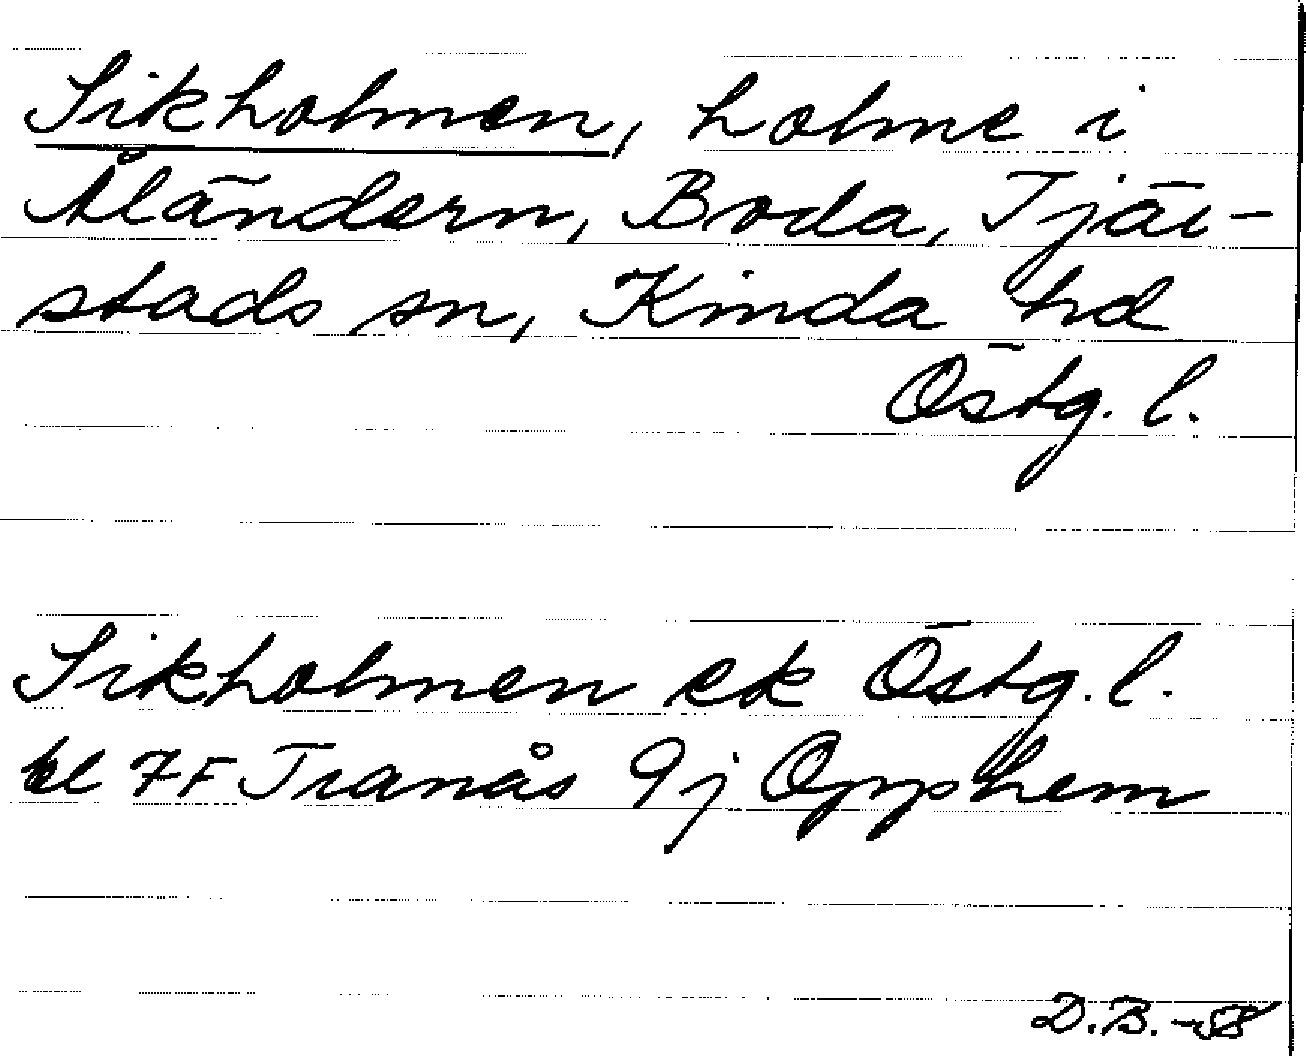 Sikholmen, holme i
Åländern, Boda, Tjär-
stads sn, Kinda hd
Östg. l.
Sikholmen ek Östg. l.
bl 7F Tranås 9j Opphem
D.B. -58